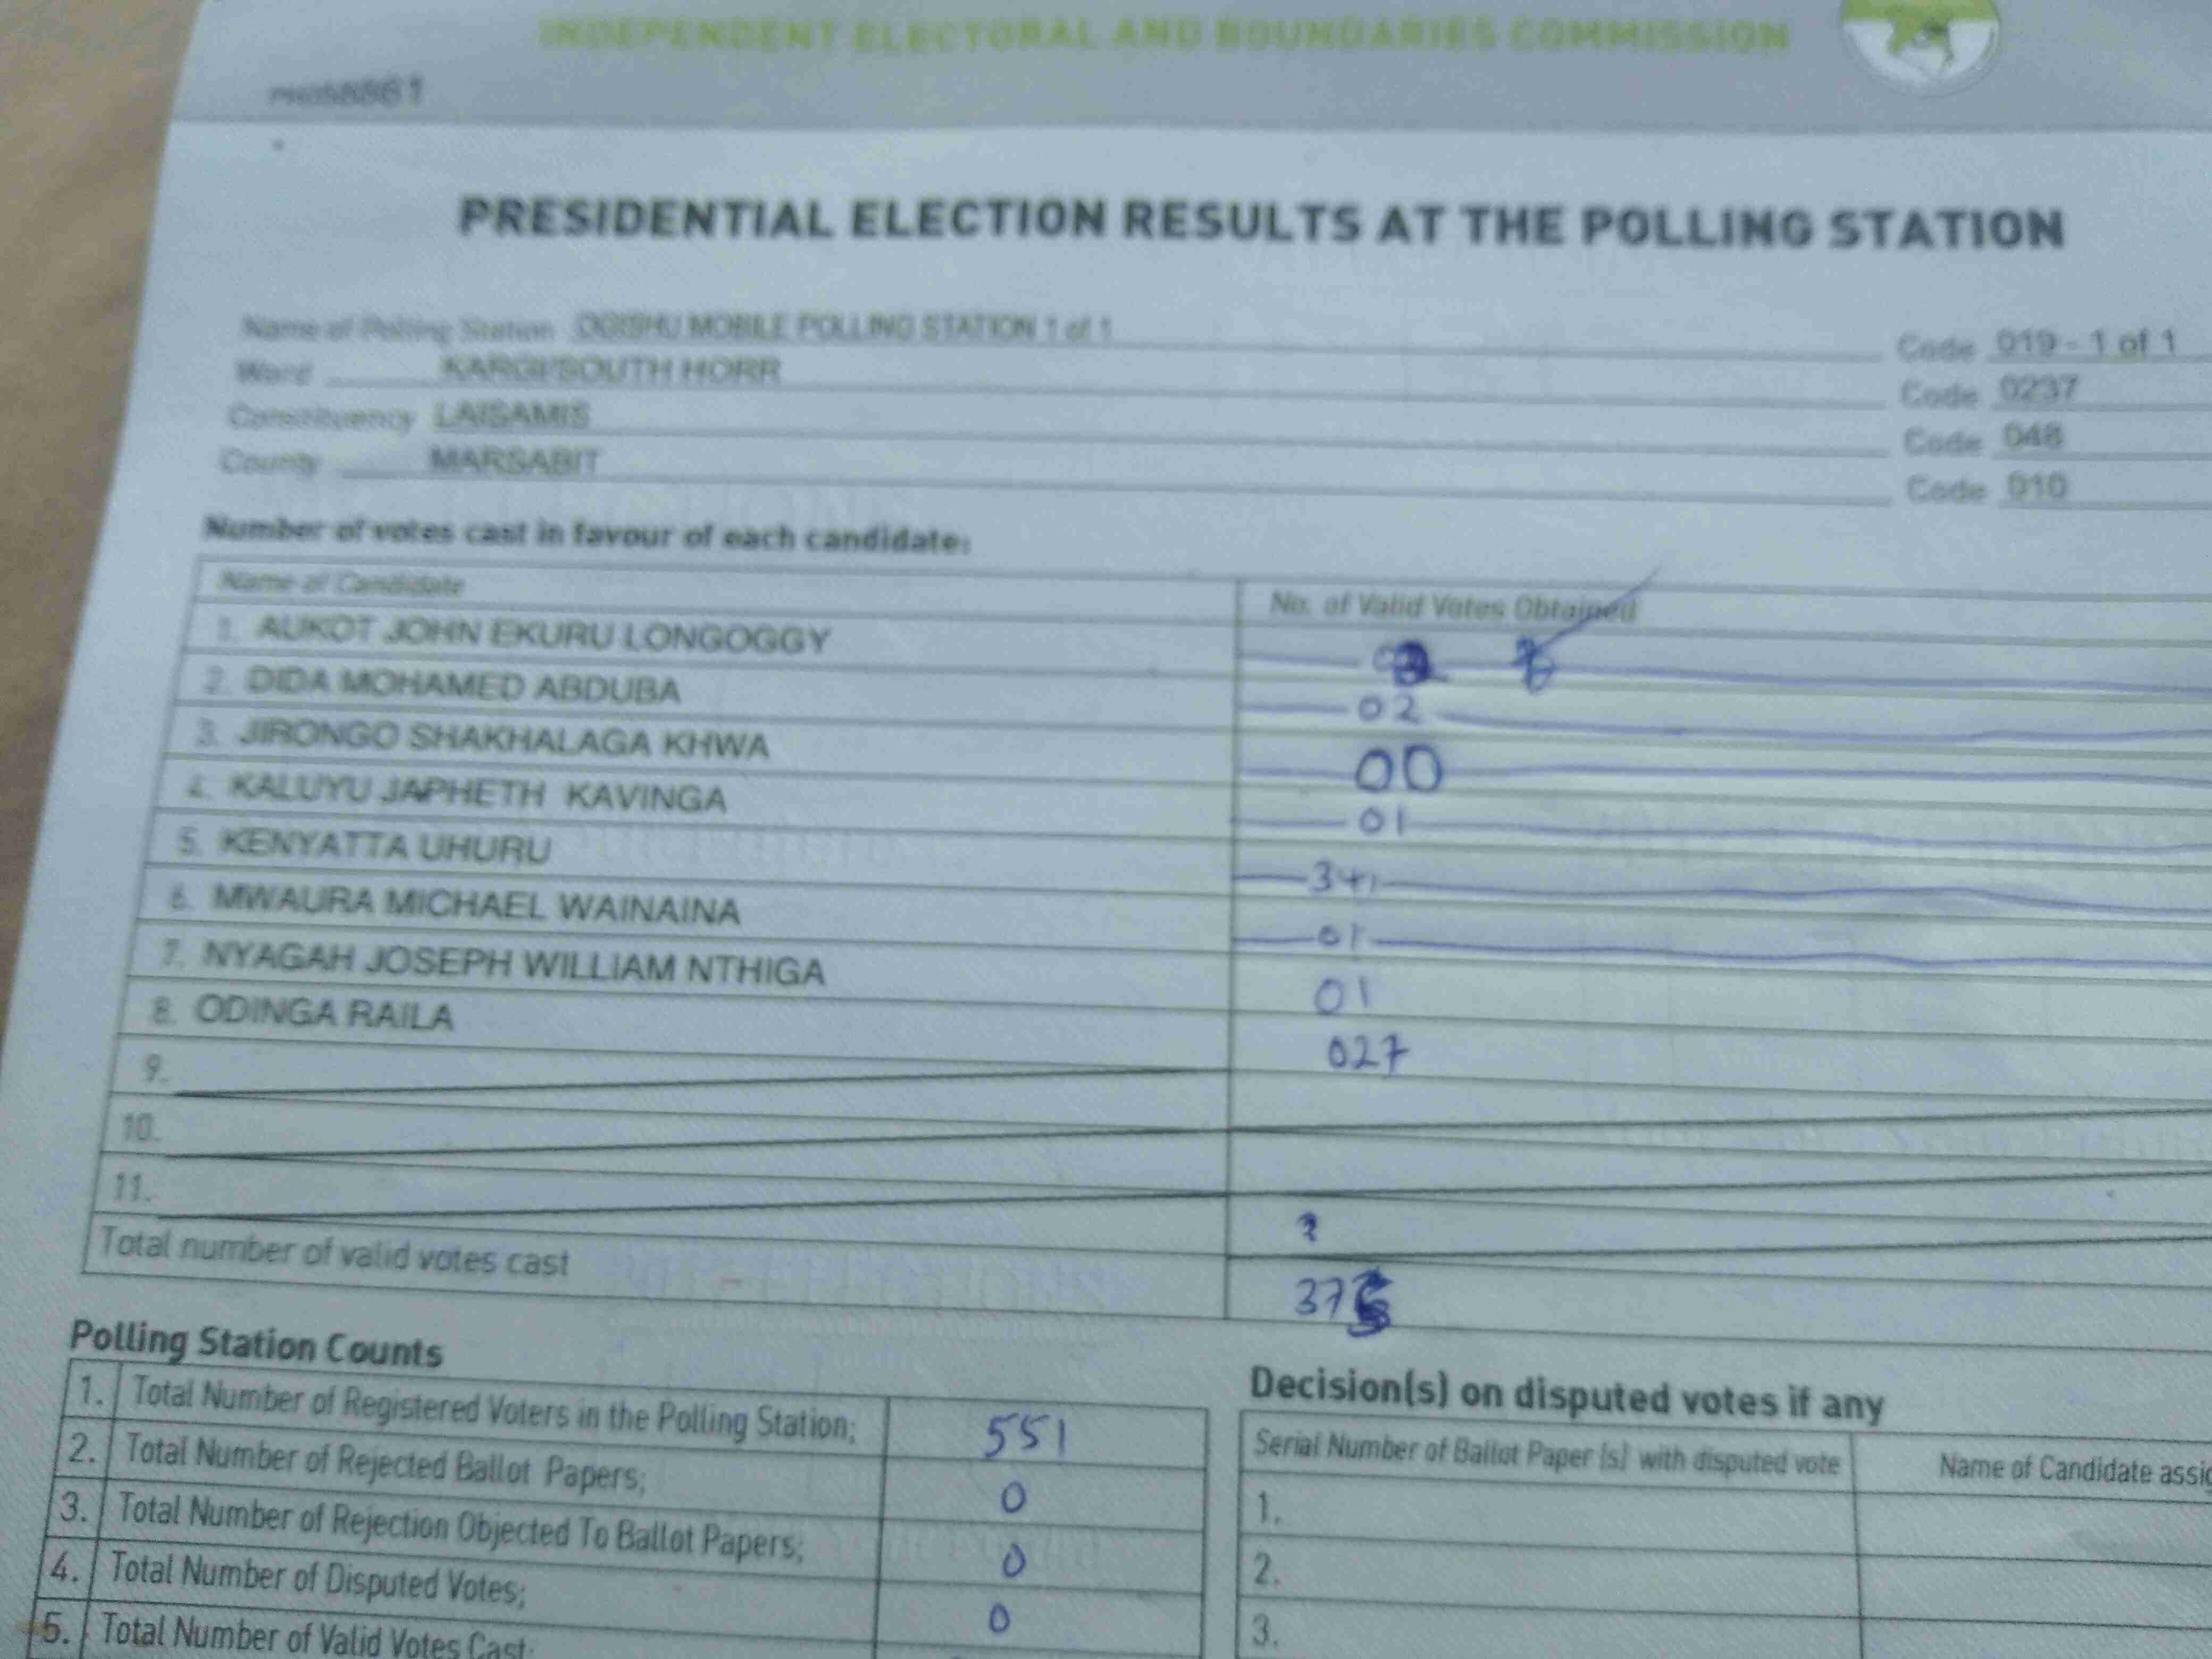 INDEPENDENT ELECTORAL AND BOUNDARIES COMMISSION
PRESIDENTIAL ELECTION RESULTS AT THE POLLING STATION
Name of Polling Station OGISHU MOBILE POLLING STATION 1 of 1 Code 019 - 1 of 1
Ward KARGI/SOUTH HORR Code 0237
Constituency LAISAMIS Code 048
County MARSABIT Code 010
Number of votes cast in favour of each candidate:
Name of Candidate No. of Valid Votes Obtained
1. AUKOT JOHN EKURU LONGOGGY
2. DIDA MOHAMED ABDUBA 02
3. JIRONGO SHAKHALAGA KHWA 00
4. KALUYU JAPHETH KAVINGA 01
5. KENYATTA UHURU 341
6. MWAURA MICHAEL WAINAINA 01
7. NYAGAH JOSEPH WILLIAM NTHIGA 01
8. ODINGA RAILA 027
9.
10.
11.
Total number of valid votes cast
Polling Station Counts
1. Total Number of Registered Voters in the Polling Station; 551
2. Total Number of Rejected Ballot Papers; 0
3. Total Number of Rejection Objected To Ballot Papers; 0
4. Total Number of Disputed Votes; 0
5. Total Number of Valid Votes Cast;
Decision(s) on disputed votes if any
Serial Number of Ballot Paper (s) with disputed vote Name of Candidate
1.
2.
3.